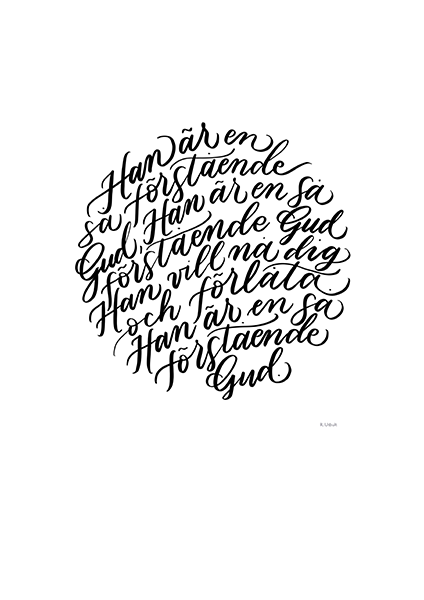 Han är en
så förstående
Gud, Han är en så
förstående Gud
Han vill nå dig
och förlåta.
Han är en så
förstående
Gud